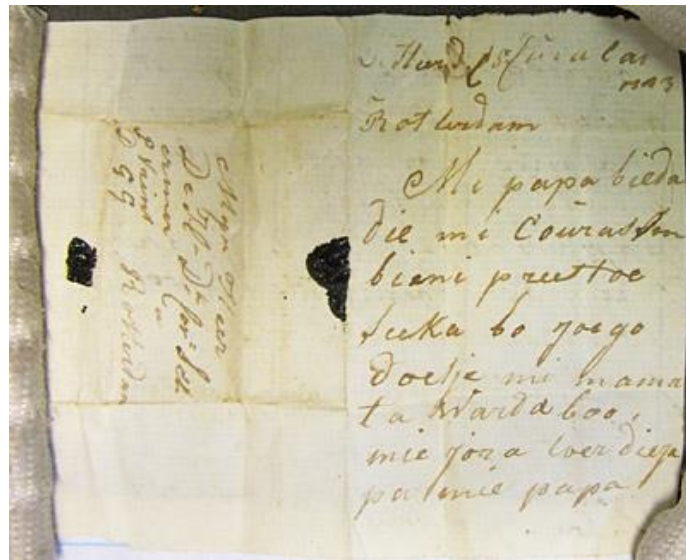 Rotterdam
Mi papa bieda
die mi Courasson
bieni prees toe
seeka bo joego
doesje mi mama
ta warda boo,
mie jora toer dieja
pa mie papa
Myn Heer
De Hr Dk Cors Sch
ermer
P vrind a
D G G Rotterdam